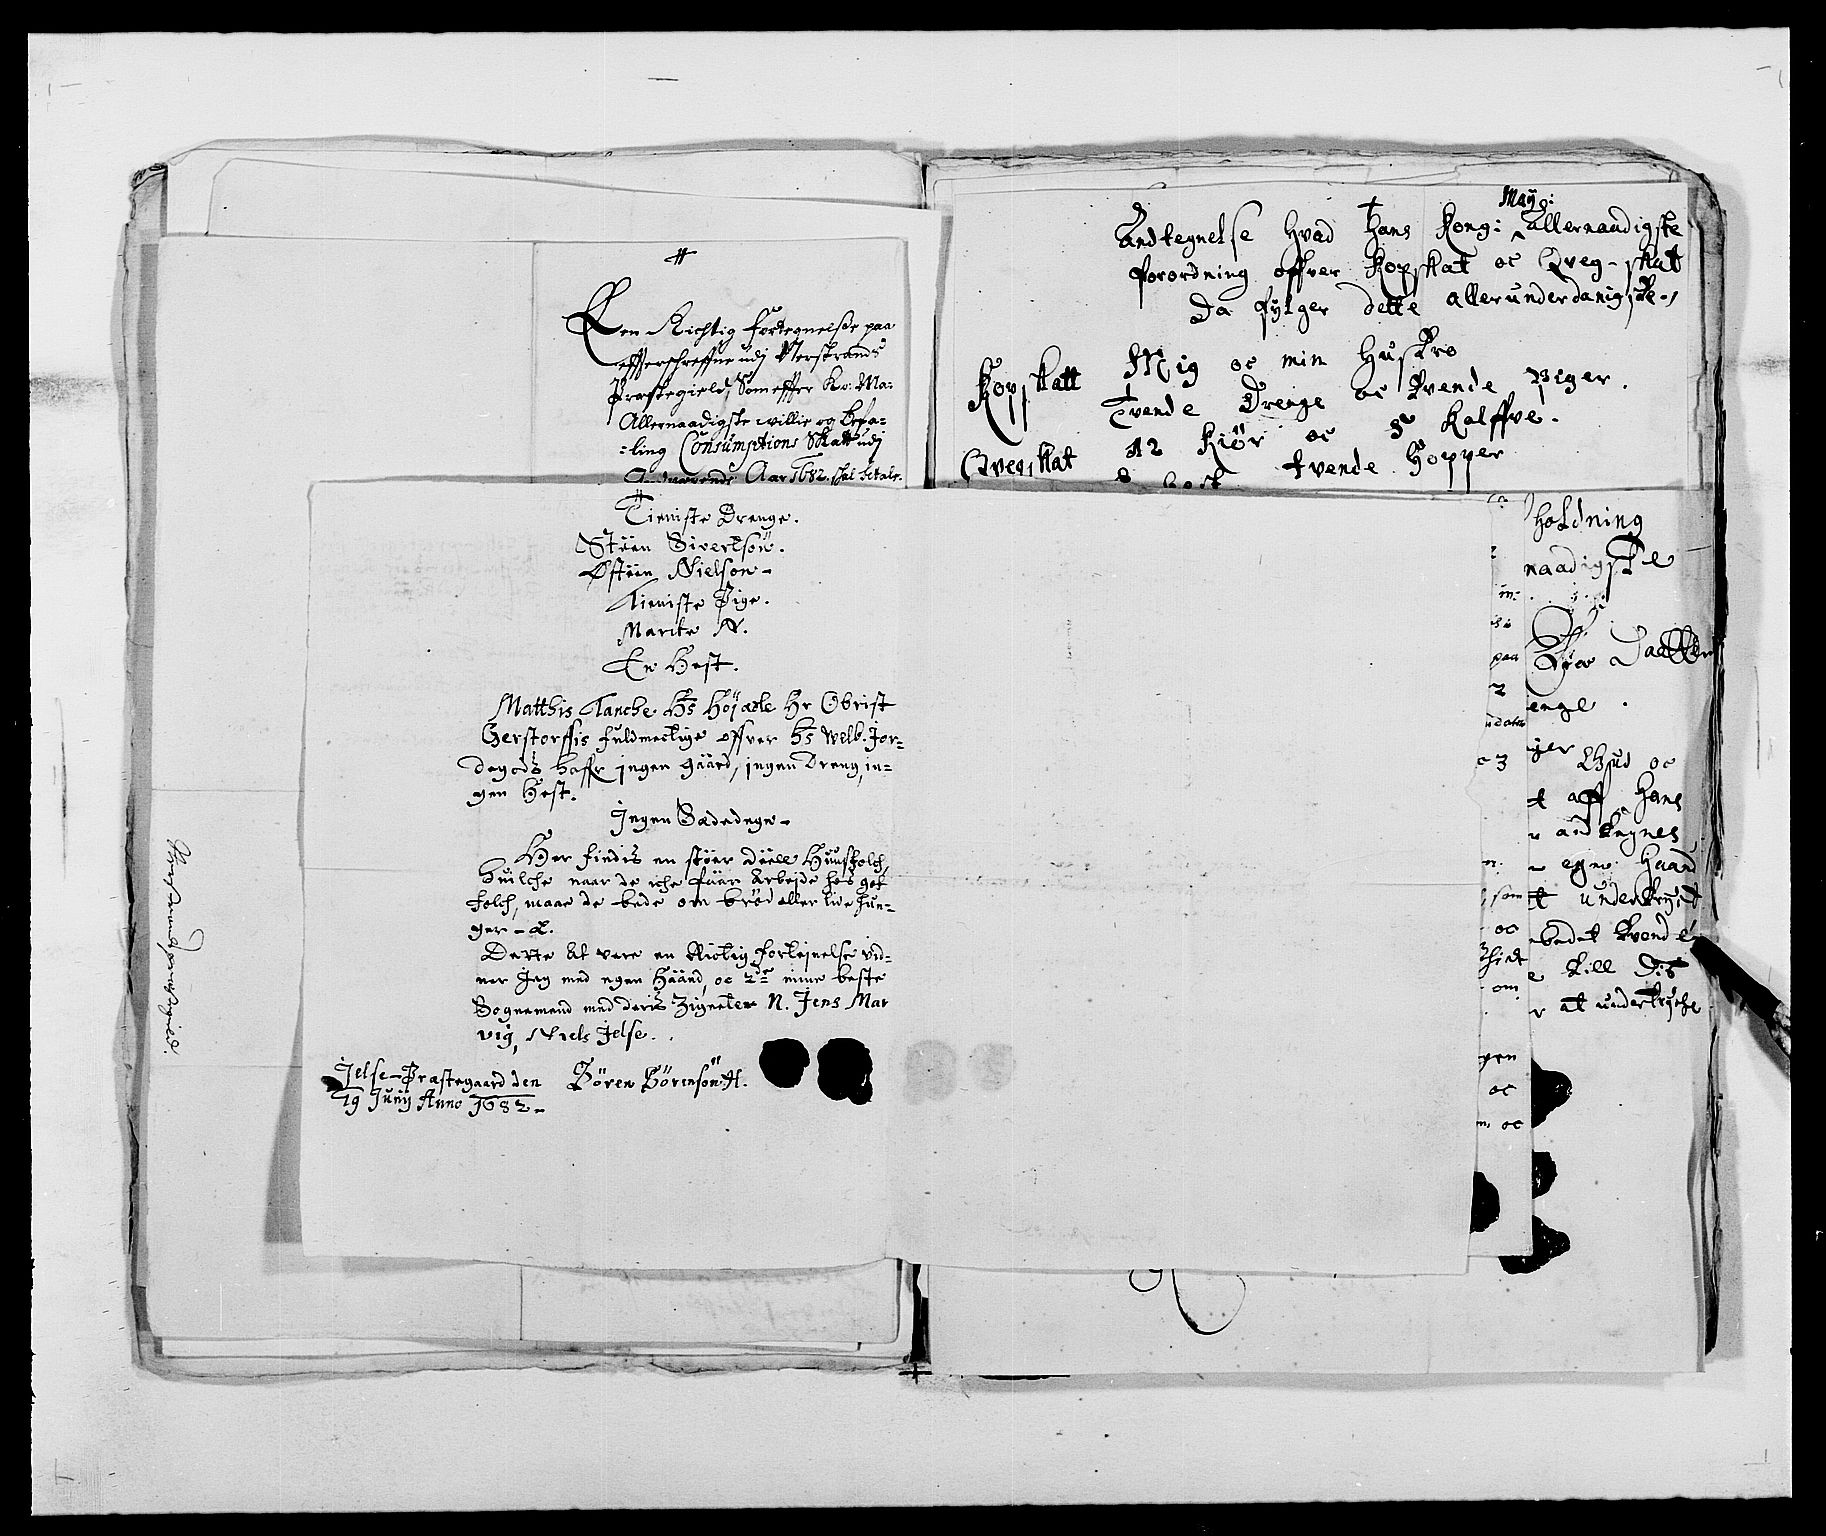 Een Richtig fortegnelsse paa
effterschreffne udj Nerstrands
Præstegield Som effter Ko: Ma-
Allernaadigste willie og befa-
-ling Consumptions Skatt udj
Aar 1682. skal betale.
Tieniste Drenge.
Stöen Sivertsön.
Østöen Nielson-
Tieniste Pige.
Marite N.
En Hest.
Matthis Tanche Hs Höjædle Hr Obrist
Gerstorffis fuldmectige offver Hs Welb. Jor-
degods haffr ingen gaard, ingen Dreng, in-
gen Hest.
Ingen Sædedegn-
Her findis en stöer deell Huusfolch,
huilche naar de iche faar Arbejde hos got
folch, maae de bede om bröd eller lide hun-
ger-
Dette At være en Rictig fortejnelse vid-
ner Jeg med egen Haand, oc 2de mine beste
Sognemend med deris Zigneter N. Jens Mar
vig, Niels Jelse.
Jelse-Præstegaard den
19 Junij Anno 1682-
Sören Sörensön
Nerstrands Præstegield.
May:
Andtegnelse hvad Hans Kong: allernaadigste
forordning offver Kopskat oc Qveg-skat
Da fylger dette allerunderdanigste-
Kopskatt Mig oc min Hustro
Tvende Drenge oc tvende Piger.
Qvegskat 12 Kiör oc 8 Kalffve.
tvende Hopper
holdning
naadigste
enge.
Bud oc
t aff Hans
andtegnes
egen Haand
t undertryct
tvende
till Dis
r at undertryche
paa
som
oc
om
oc
oc